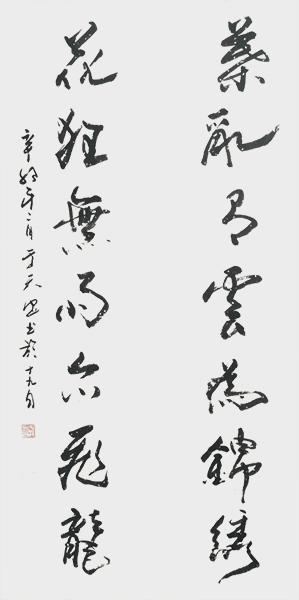 葉亂有雲為錦繡
花狂無雨亦飛龍
辛卯年二月于天書於十九